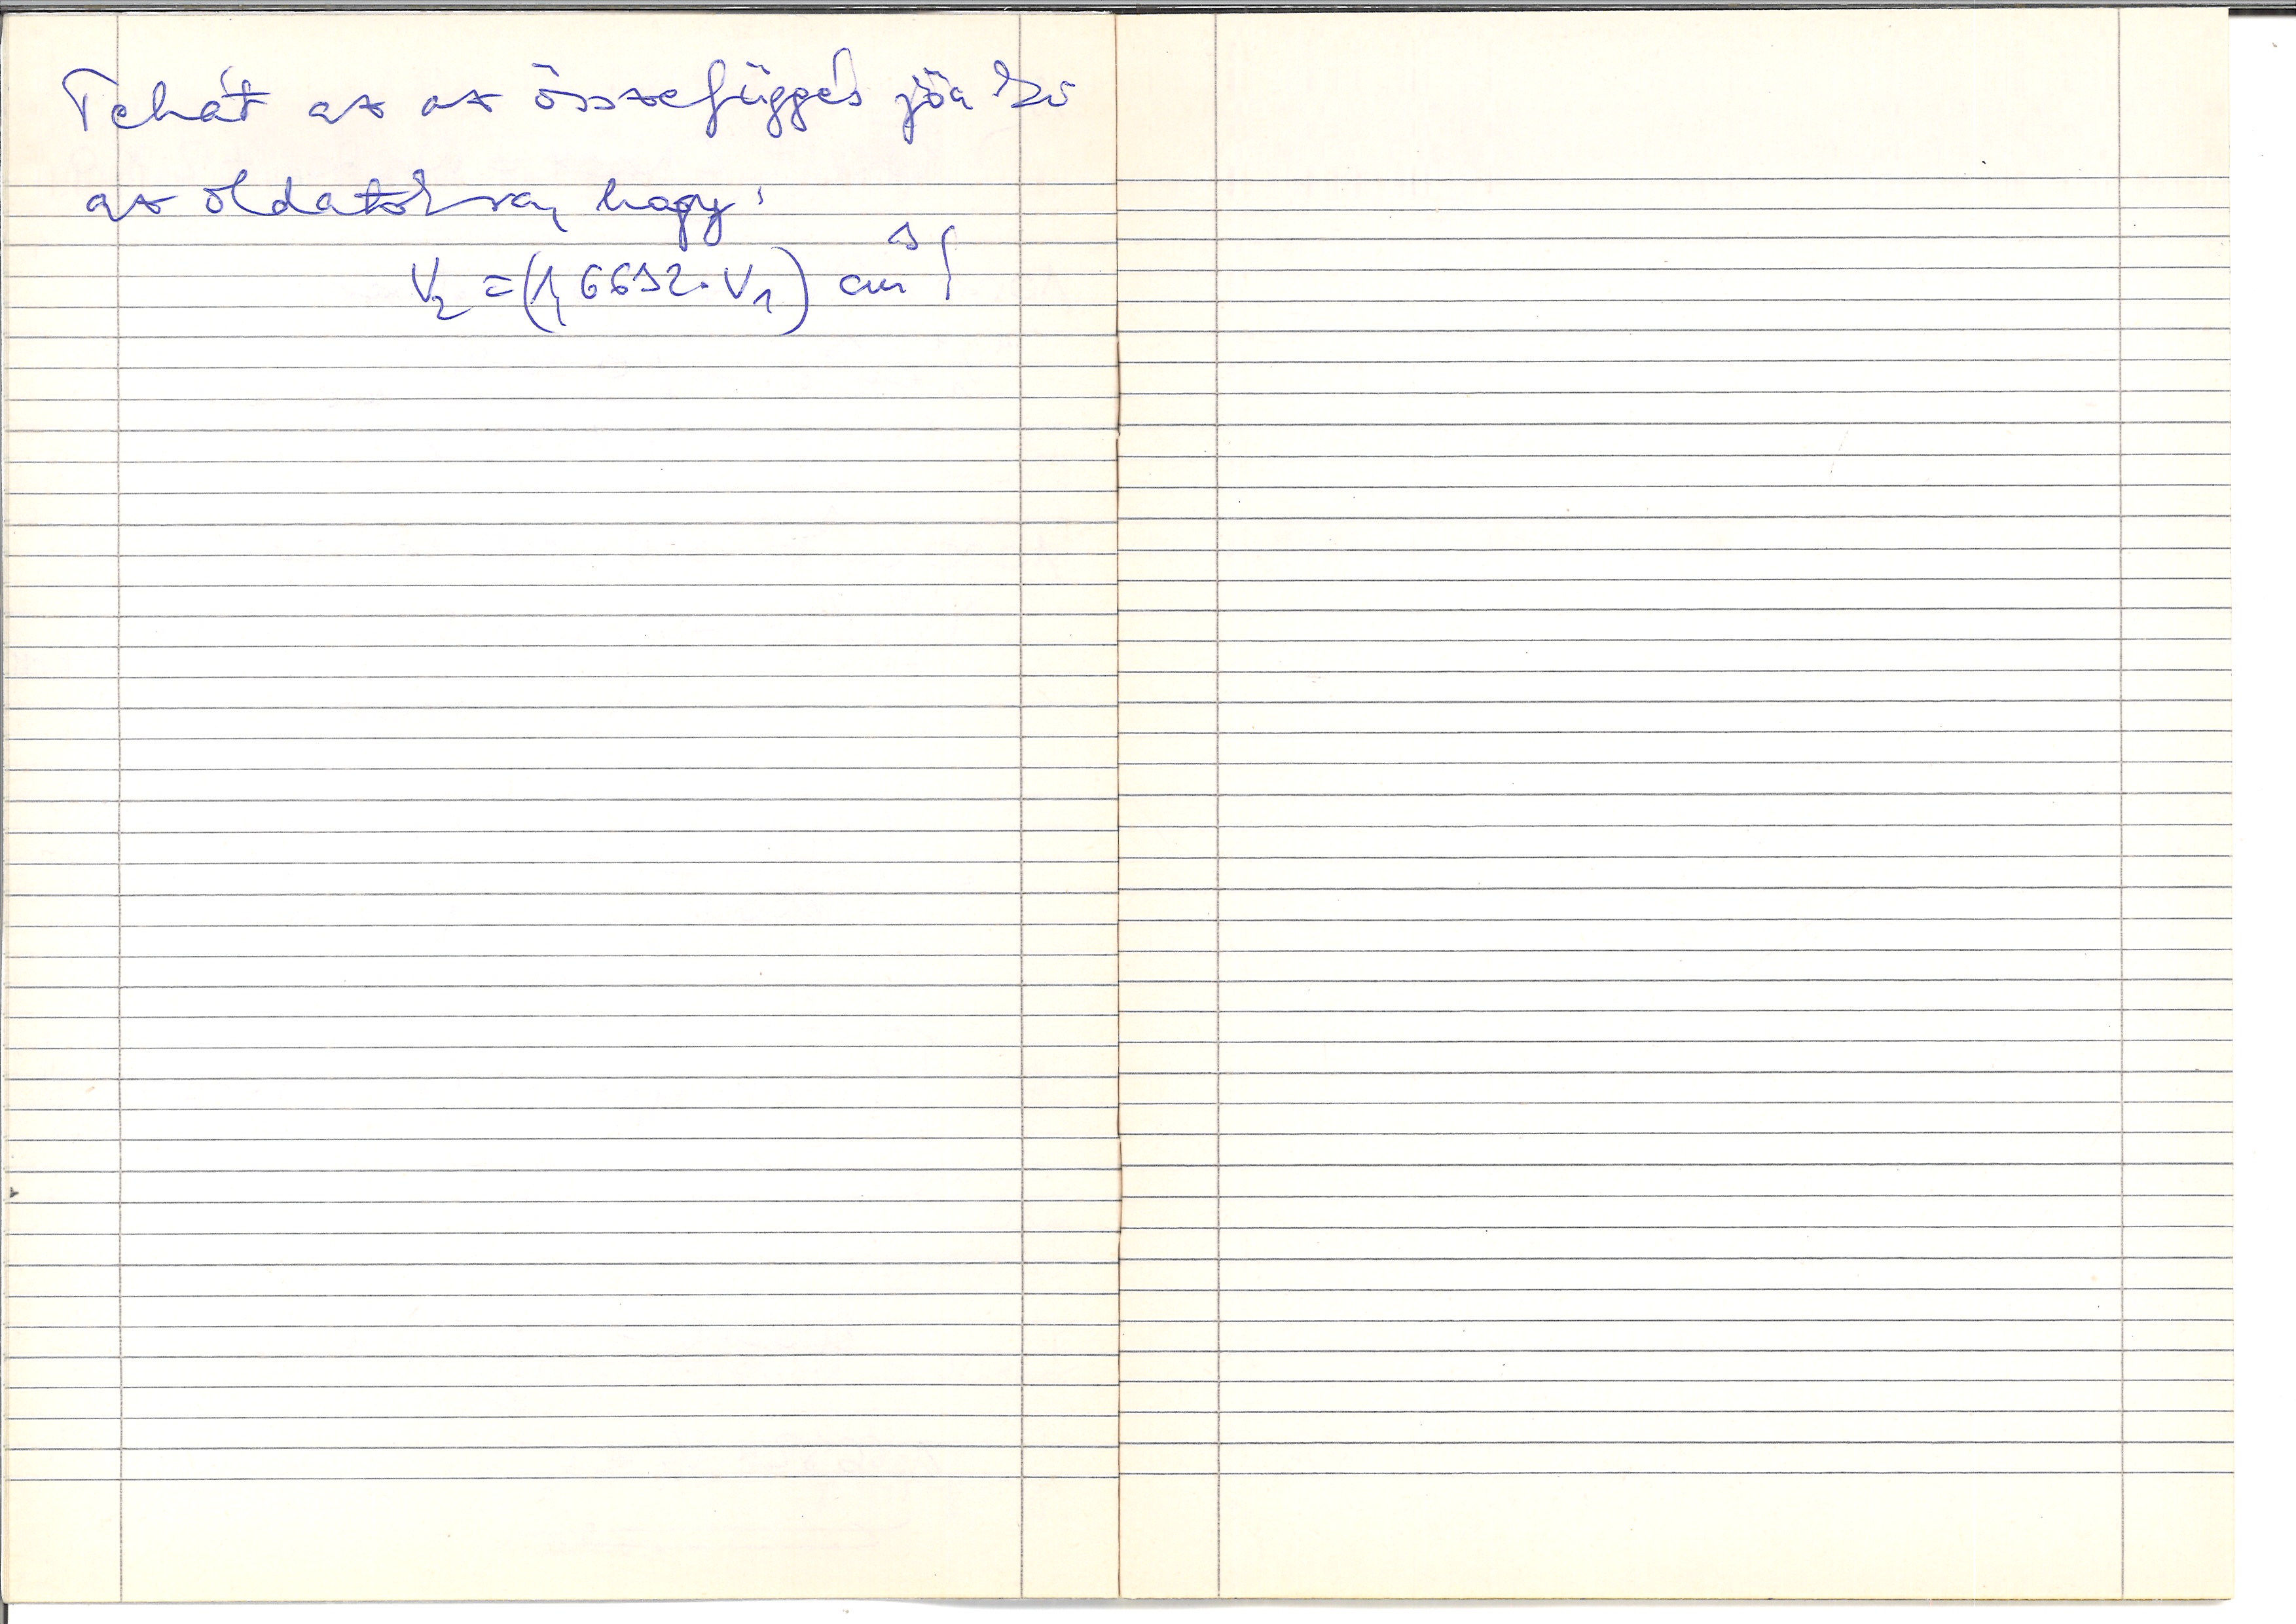 Tehát az az összefüggés jön ki
az oldatokra, hogy:
V₂ = (1,6692·V₁) cm³!